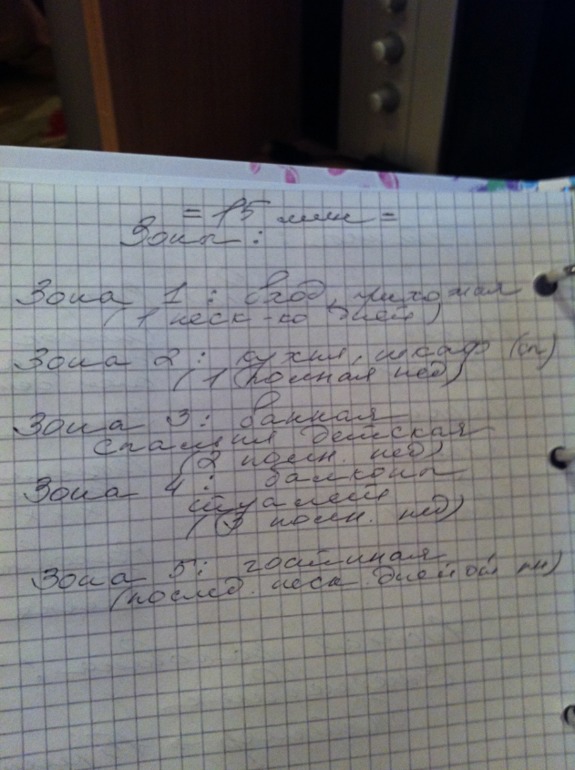 = 15 мин =
Зоны:
Зона 1: вход, прихожая
(1 неск-ко дней)
Зона 2: кухня, шкаф (сп)
(1 полная нед)
Зона 3: ванная
спальня детская
(2 полн. нед)
Зона 4: балконы
туалет
(3 полн. нед)
Зона 5: гостиная
(послед. неск. дней от пн)